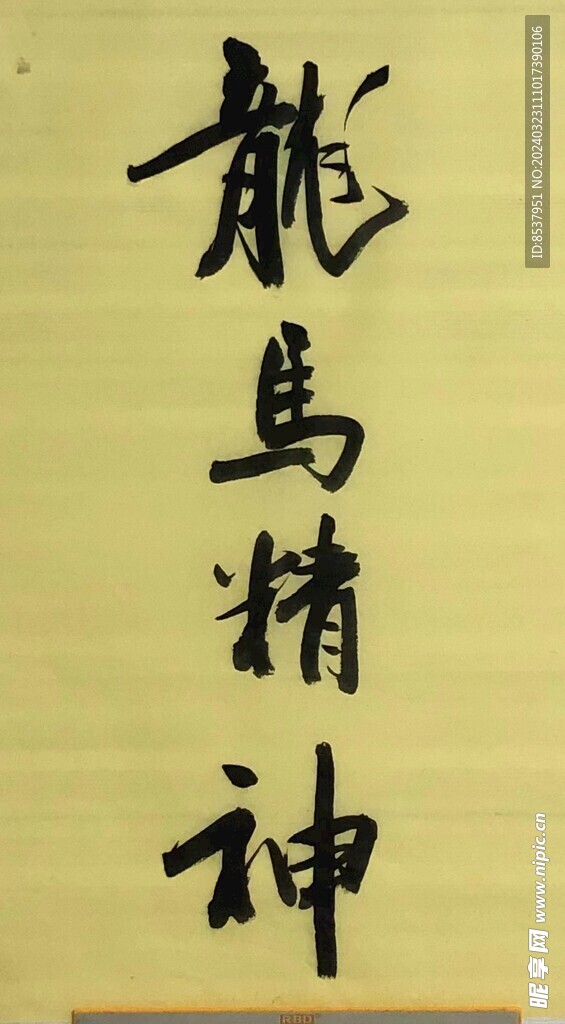 龍馬精神
ID:8537951 NO:20240323111017390106
昵享网 www.nipic.cn
RBD